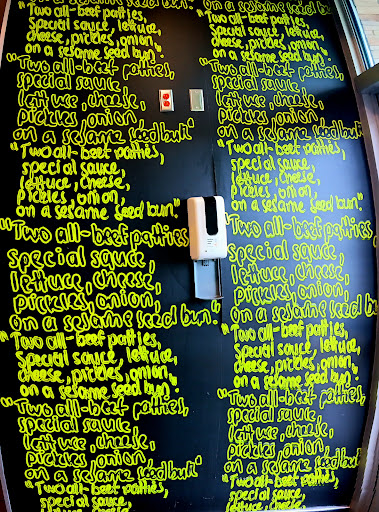 on a sesame seed bun."
"Two all-beef patties,
special sauce, lettuce,
cheese, pickles, onion,
on a sesame seed bun."
"Two all-beef patties,
special sauce,
lettuce, cheese,
pickles, onion
on a sesame seed bun."
"Two all-beef patties,
special sauce,
lettuce, cheese,
pickles, onion,
on a sesame seed bun."
"Two all-beef patties,
special sauce,
lettuce, cheese,
pickles, onion,
on a sesame seed bun."
"Two all-beef patties,
special sauce, lettuce,
cheese, pickles, onion,
on a sesame seed bun."
"Two all-beef patties,
special sauce,
lettuce, cheese,
pickles, onion
on a sesame seed bun."
"Two all-beef patties,
special sauce,
lettuce, cheese,
on a sesame seed bu
"Two all-beef patties,
special sauce, lettuce,
cheese, pickles, onion,
on a sesame seed bun."
"Two all-beef patties,
special sauce,
lettuce, cheese,
pickles, onion
on a sesame seed bun."
"Two all-beef patties,
special sauce,
lettuce, cheese,
pickles, onion,
on a sesame seed bun."
"Two all-beef patties,
special sauce,
lettuce, cheese,
pickles, onion,
on a sesame seed bu
"Two all-beef patties,
special sauce, lettuce,
cheese, pickles, onion,
on a sesame seed bun."
"Two all-beef patties,
special sauce,
lettuce, cheese,
pickles, onion
on a sesame seed bun."
"Two all-beef patties,
special sauce,
lettuce, cheese,